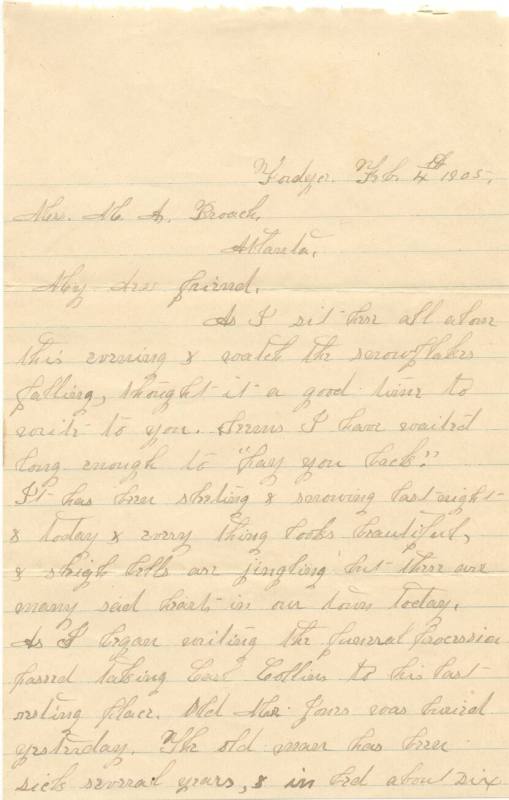 Fordyce. Feb. 4th 1905.
Mrs. M. A. Broach,
Atlanta.
My dear friend.
As I sit here all alone
this evening & watch the snowflakes
falling, thought it a good time to
write to you. Seems I have waited
long enough to "pay you back."
It has been sleeting & snowing last night
& today & every thing looks beautiful,
& sleigh bells are jingling but there are
many sad hearts in our town today.
As I began writing the funeral procession
passed taking Earl Collins to his last
resting place. Old Mr. Jones was buried
yesterday. The old man has been
sick several years, & in bed about six